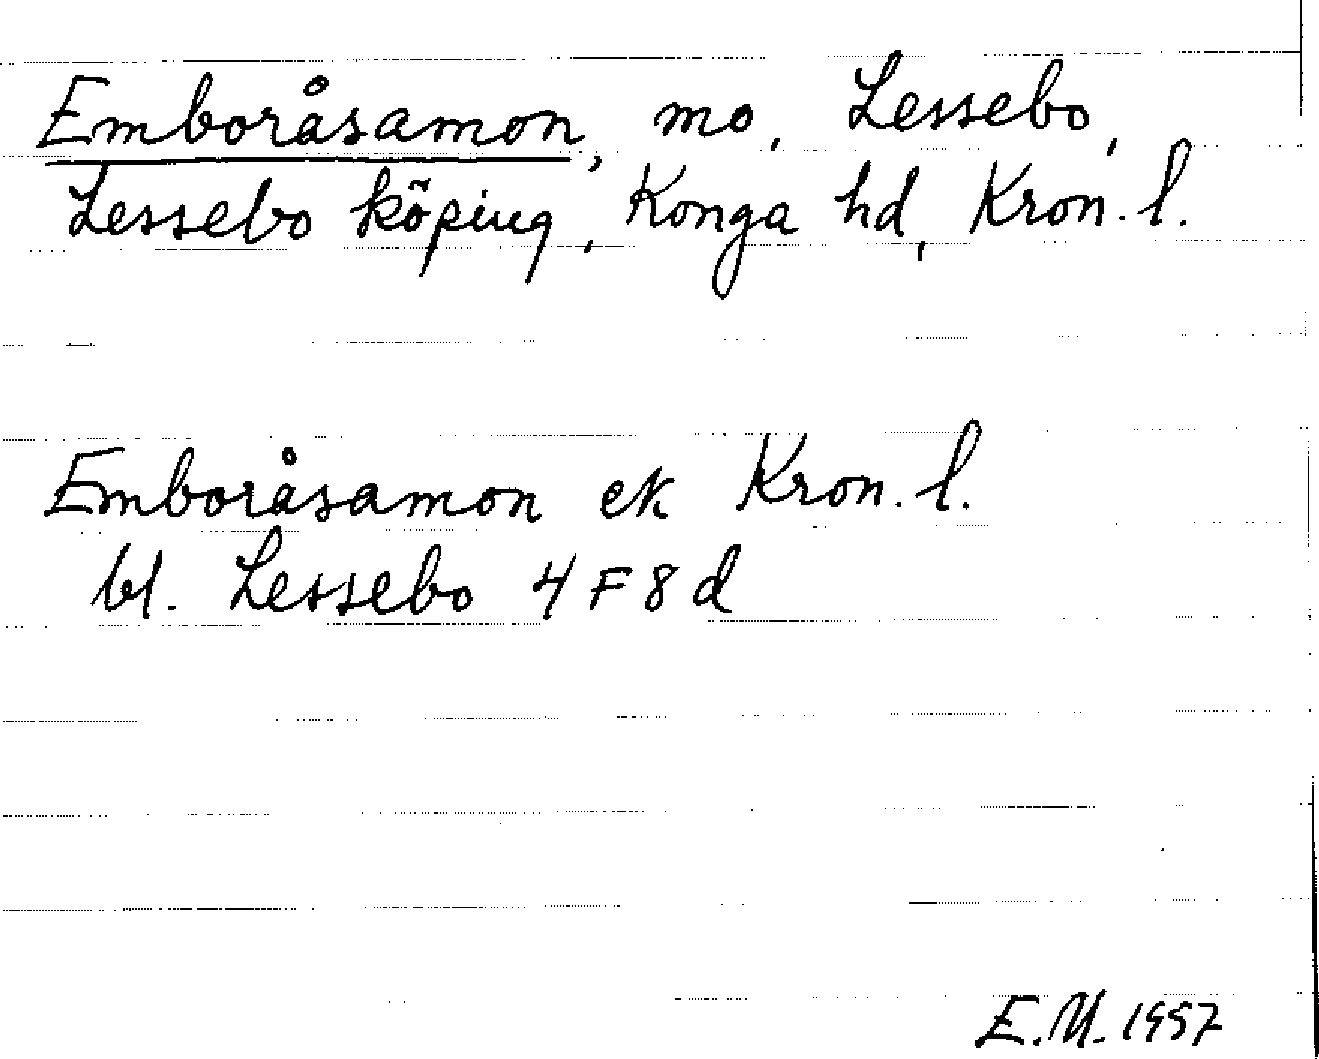 Emboråsamon, mo, Lessebo,
Lessebo köping, Konga hd, Kron. l.
Emboråsamon ek Kron. l.
bl. Lessebo 4 F 8 d
E.U. 1957